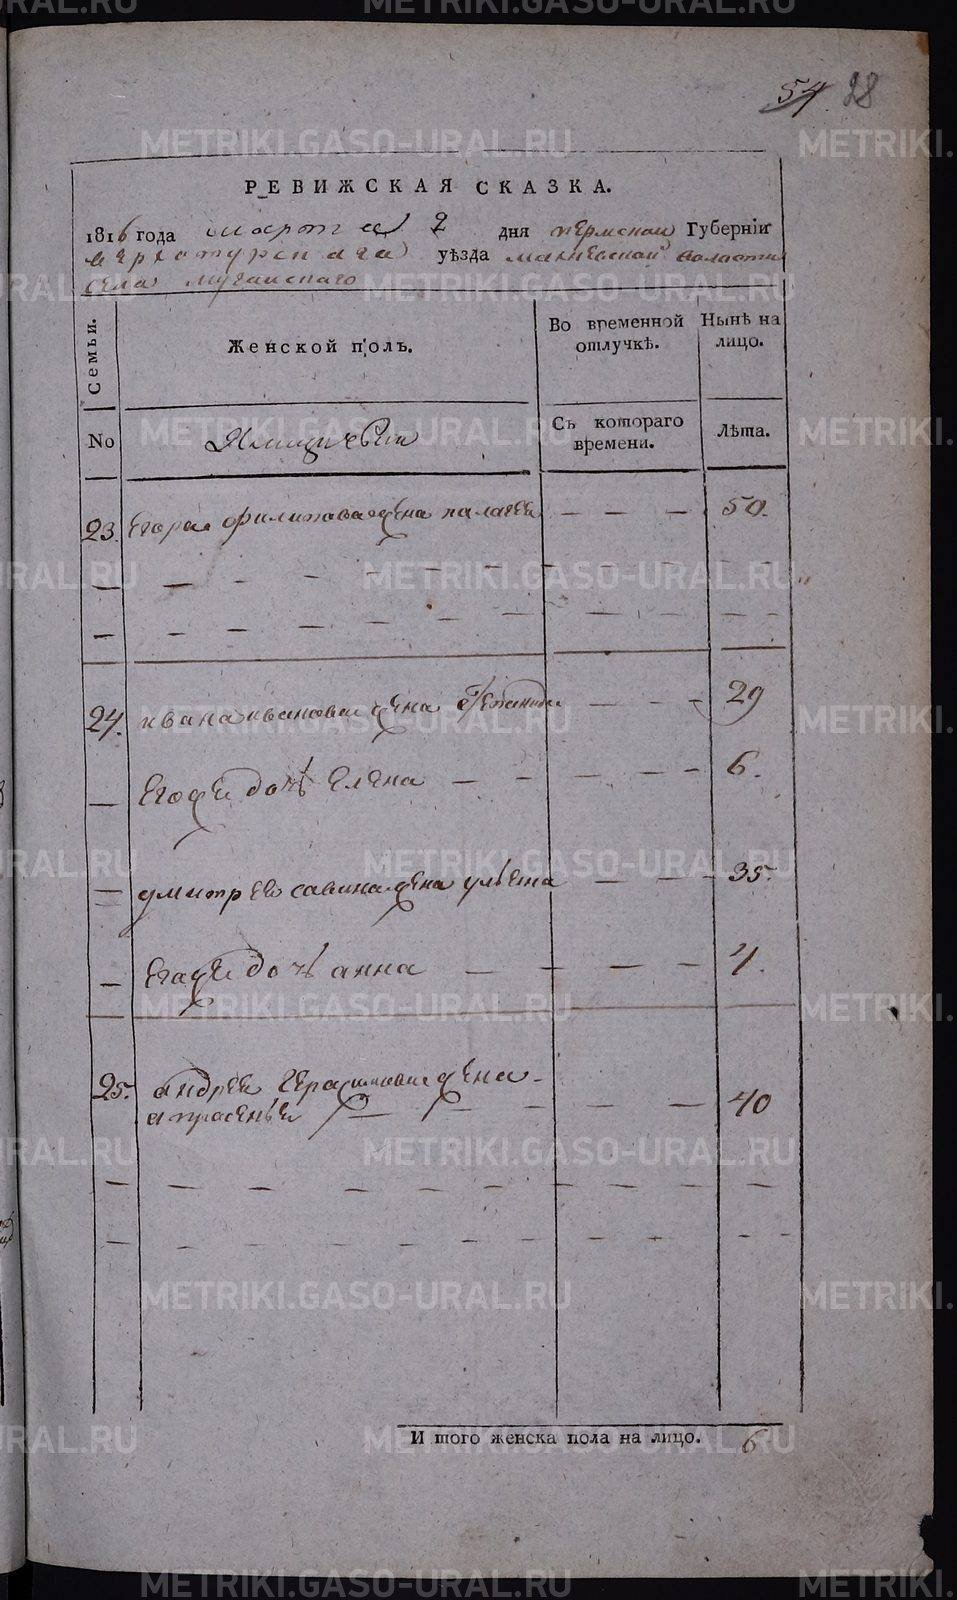 54 28
РЕВИЖСКАЯ СКАЗКА.
1816 года марта 2 дня пермской Губерніи
верхотурскаго уѣзда махневской воласти
села мугайскаго
Семьи.
Женской полъ.
Во временной отлучкѣ.
Нынѣ на лицо.
No
Ямщики
Съ котораго времени.
Лѣта.
23. егора филипова жена палагея — — — 50.
24. ивана иванова жена — — — 29
— его же дочь елена — — — — — 6.
— дмитрея савина жена ульяна — — — 35.
— его же дочь анна — — — — 4.
25. андрея герасимова жена
апрасенья — — — — — 40
И того женска пола на лицо. 6
METRIKI.GASO-URAL.RU